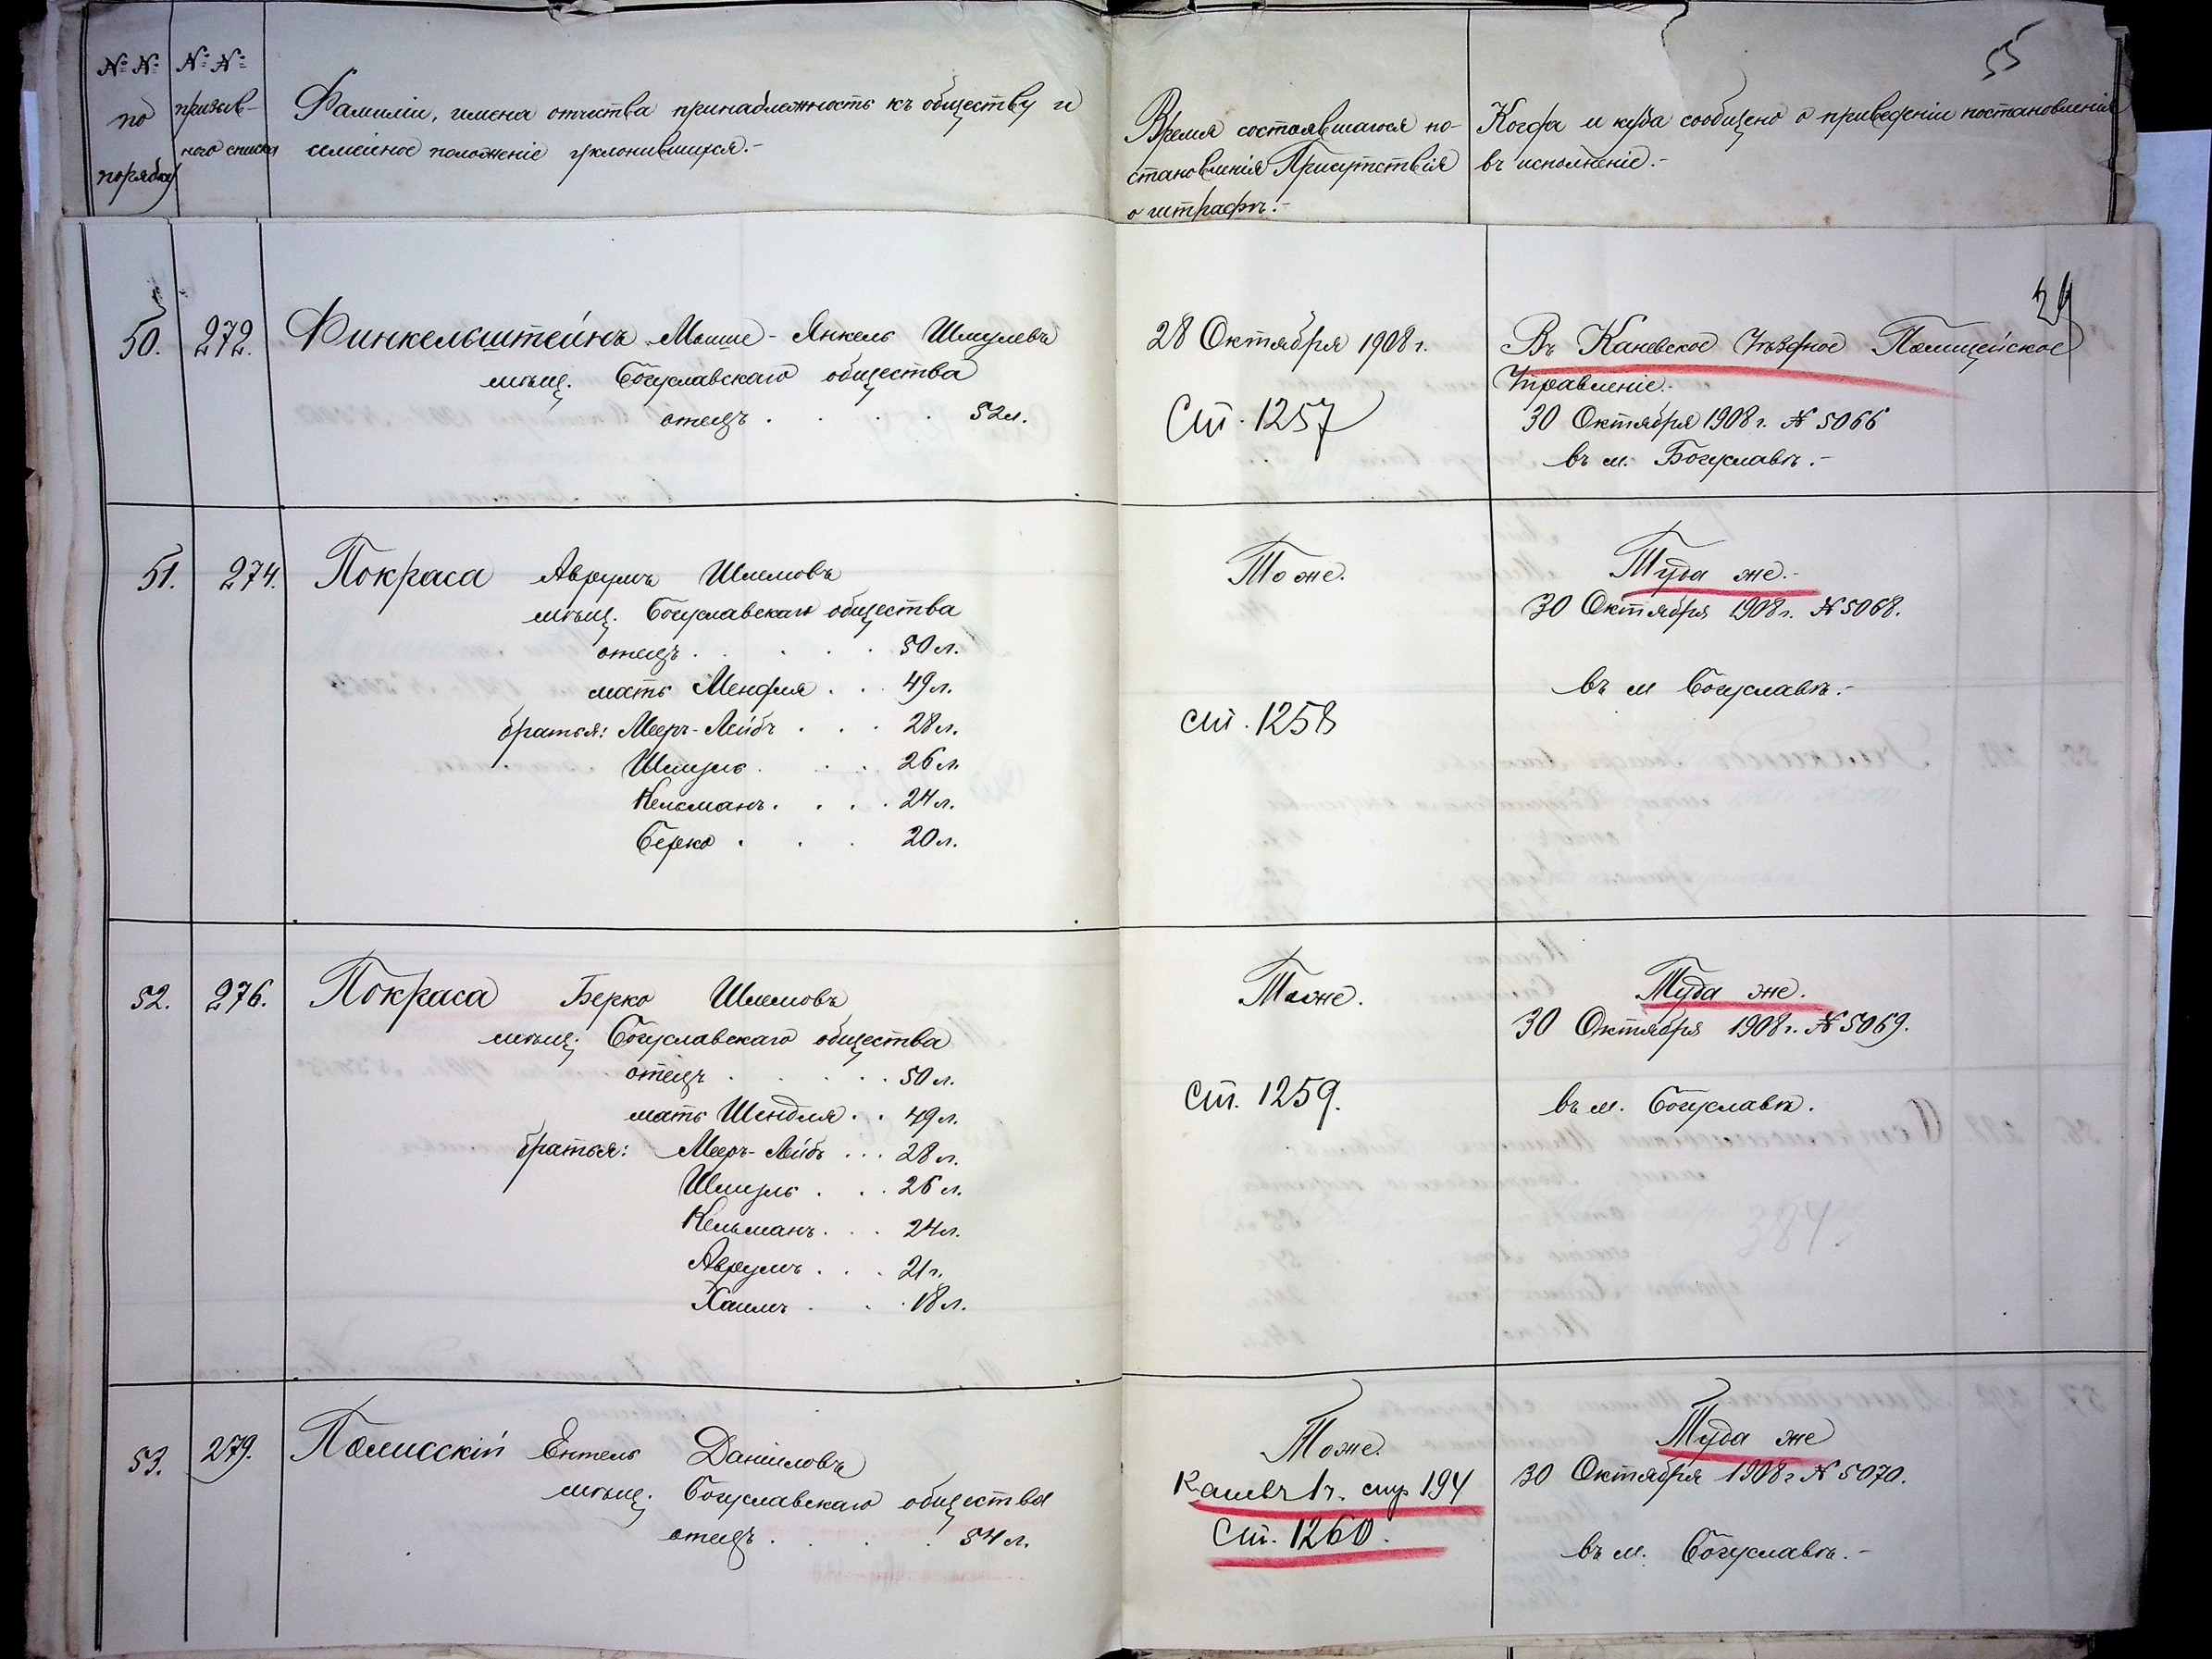 № № по порядку
№ № призыв-
ного списка
Фамиліи, имена отчества принадлежность къ обществу и
семейное положеніе уклонившихся.-
Время состоявшагося по-
становленія Присутствія
о штрафѣ.-
Когда и куда сообщено о приведеніи постановленія
въ исполненіе.-
55
50. 272. Финкельштейнъ Мошше-Янкель Шмулевъ
мѣщ. Богуславскаго общества
отецъ . . . . 52 л.
28 Октября 1908 г.
Ст. 1257
24
Въ Каневское Уѣздное Полицейское
Управленіе.-
30 Октября 1908 г. № 5066
въ м. Богуславѣ.-
51. 274. Покраса Аврумъ Шлемовъ
мѣщ. Богуславскаго общества
отецъ . . . . 50 л.
мать Шендля . . 49 л.
братья: Мееръ-Лейбъ . . . 28 л.
Шмуль . . . 26 л.
Кельманъ . . . . 24 л.
Берко . . . 20 л.
Тоже.
ст. 1258
Туда же.-
30 Октября 1908 г. № 5068.
въ м Богуславѣ.-
52. 276. Покраса Берко Шлемовъ
мѣщ. Богуславскаго общества
отецъ . . . . . 50 л.
мать Шендля . . 49 л.
братья: Мееръ-Лейбъ . . . 28 л.
Шмуль . . . 26 л.
Кельманъ . . . 24 л.
Аврумъ . . . 21 г.
Хаимъ . . . 18 л.
Тоже.
ст. 1259.
Туда же.
30 Октября 1908 г. № 5069.
въ м. Богуславѣ.
53. 279. Полисскій Ентель Даніиловъ
мѣщ. Богуславскаго общества
отецъ . . . . 54 л.
Тоже.
Каневъ 1 ч. стр 194
ст. 1260.
Туда же
30 Октября 1908 г № 5070.
въ м. Богуславѣ.-